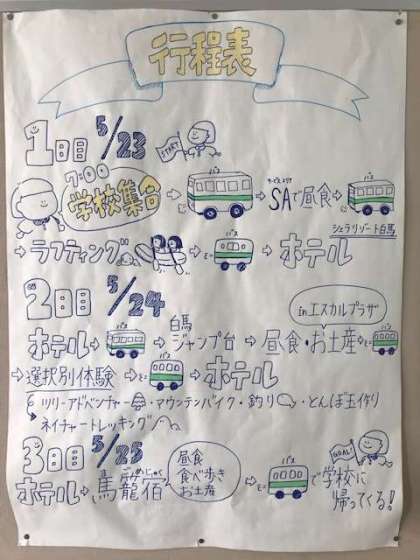 行程表
1日目 5/23 START
7:00 学校集合 → バス → SAで昼食 → バス
サービスエリア
シェラリゾート白馬
→ ラフティング → バス → ホテル
2日目 5/24
in エスカルプラザ
ホテル → バス → 白馬ジャンプ台 → 昼食・お土産 → バス
→ 選択別体験 → バス → ホテル
ツリーアドベンチャー・マウンテンバイク・釣り・とんぼ玉作り
ネイチャートレッキング
3日目 5/25 GOAL!
ホテル → 馬籠宿 昼食 食べ歩き お土産 → バス で学校に帰ってくる!